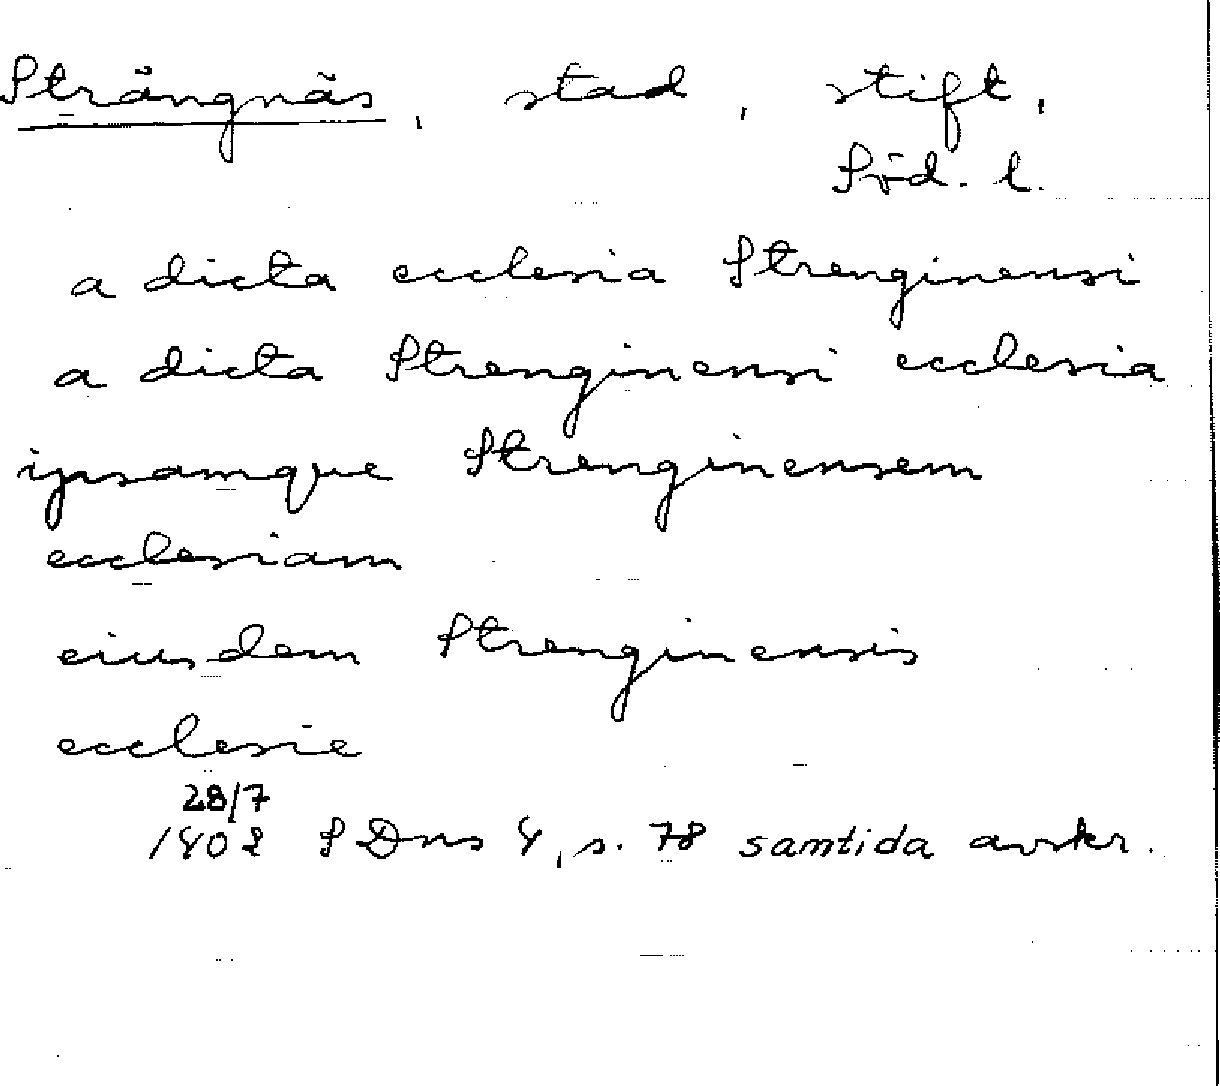 Strängnäs, stad, stift,
Söd. l.
a dicta ecclesia Strenginensi
a dicta Strenginensi ecclesia
ipsamque Strenginensem
ecclesiam
eiusdem Strenginensis
ecclesie
28/7
1402 SDns 4, s. 78 samtida avskr.